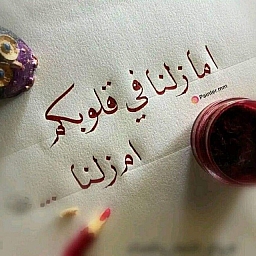 اما زلنا في قلوبكم
ام زلنا ...
Painter.mm